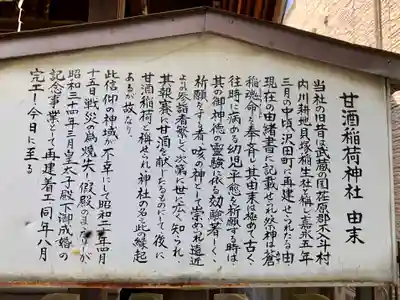 甘酒稲荷神社 由来
当社の旧昔は武蔵の国荏原郡不入斗村
内川耕地貝塚稲生社と称し嘉永五年
三月の中頃沢田町に再建せつたる由
現在の由緒書に記載せられ祭神は蒼
稲魂命を奉り斉し其由来は極めて古く
往時に病める幼児平愈を祈願する時は
其の御神徳の霊験に依る効験著しく
祈願をする者咳の神として崇めれ遠近
よりの参詣者繁しく次第に世に広く知られ
其報賽に甘酒を献じたるものにして後に
甘酒稲荷と称せられ神社の名と此の縁起
あるが故なり
此信仰の神域が不幸にして昭和二十年四月
十五日戦災の為焼失し仮殿のままなりしが
昭和三十四年三月皇太子殿下御成婚の
記念事業として再建着工同年八月
完工し今日に至る